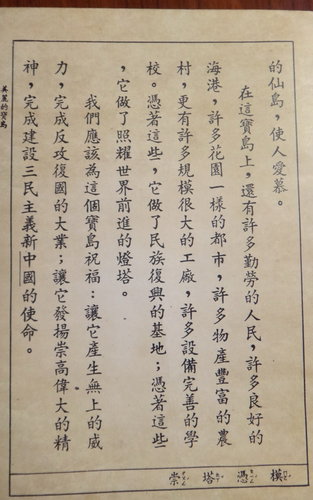 的仙島，使人愛慕。
在這寶島上，還有許多勤勞的人民，許多良好的
海港，許多花園一樣的都市，許多物產豐富的農
村，更有許多規模很大的工廠，許多設備完善的學
校。憑著這些，它做了民族復興的基地；憑著這些
，它做了照耀世界前進的燈塔。
我們應該為這個寶島祝福：讓它產生無上的威
力，完成反攻復國的大業；讓它發揚崇高偉大的精
神，完成建設三民主義新中國的使命。
模 憑 塔 崇
美麗的寶島